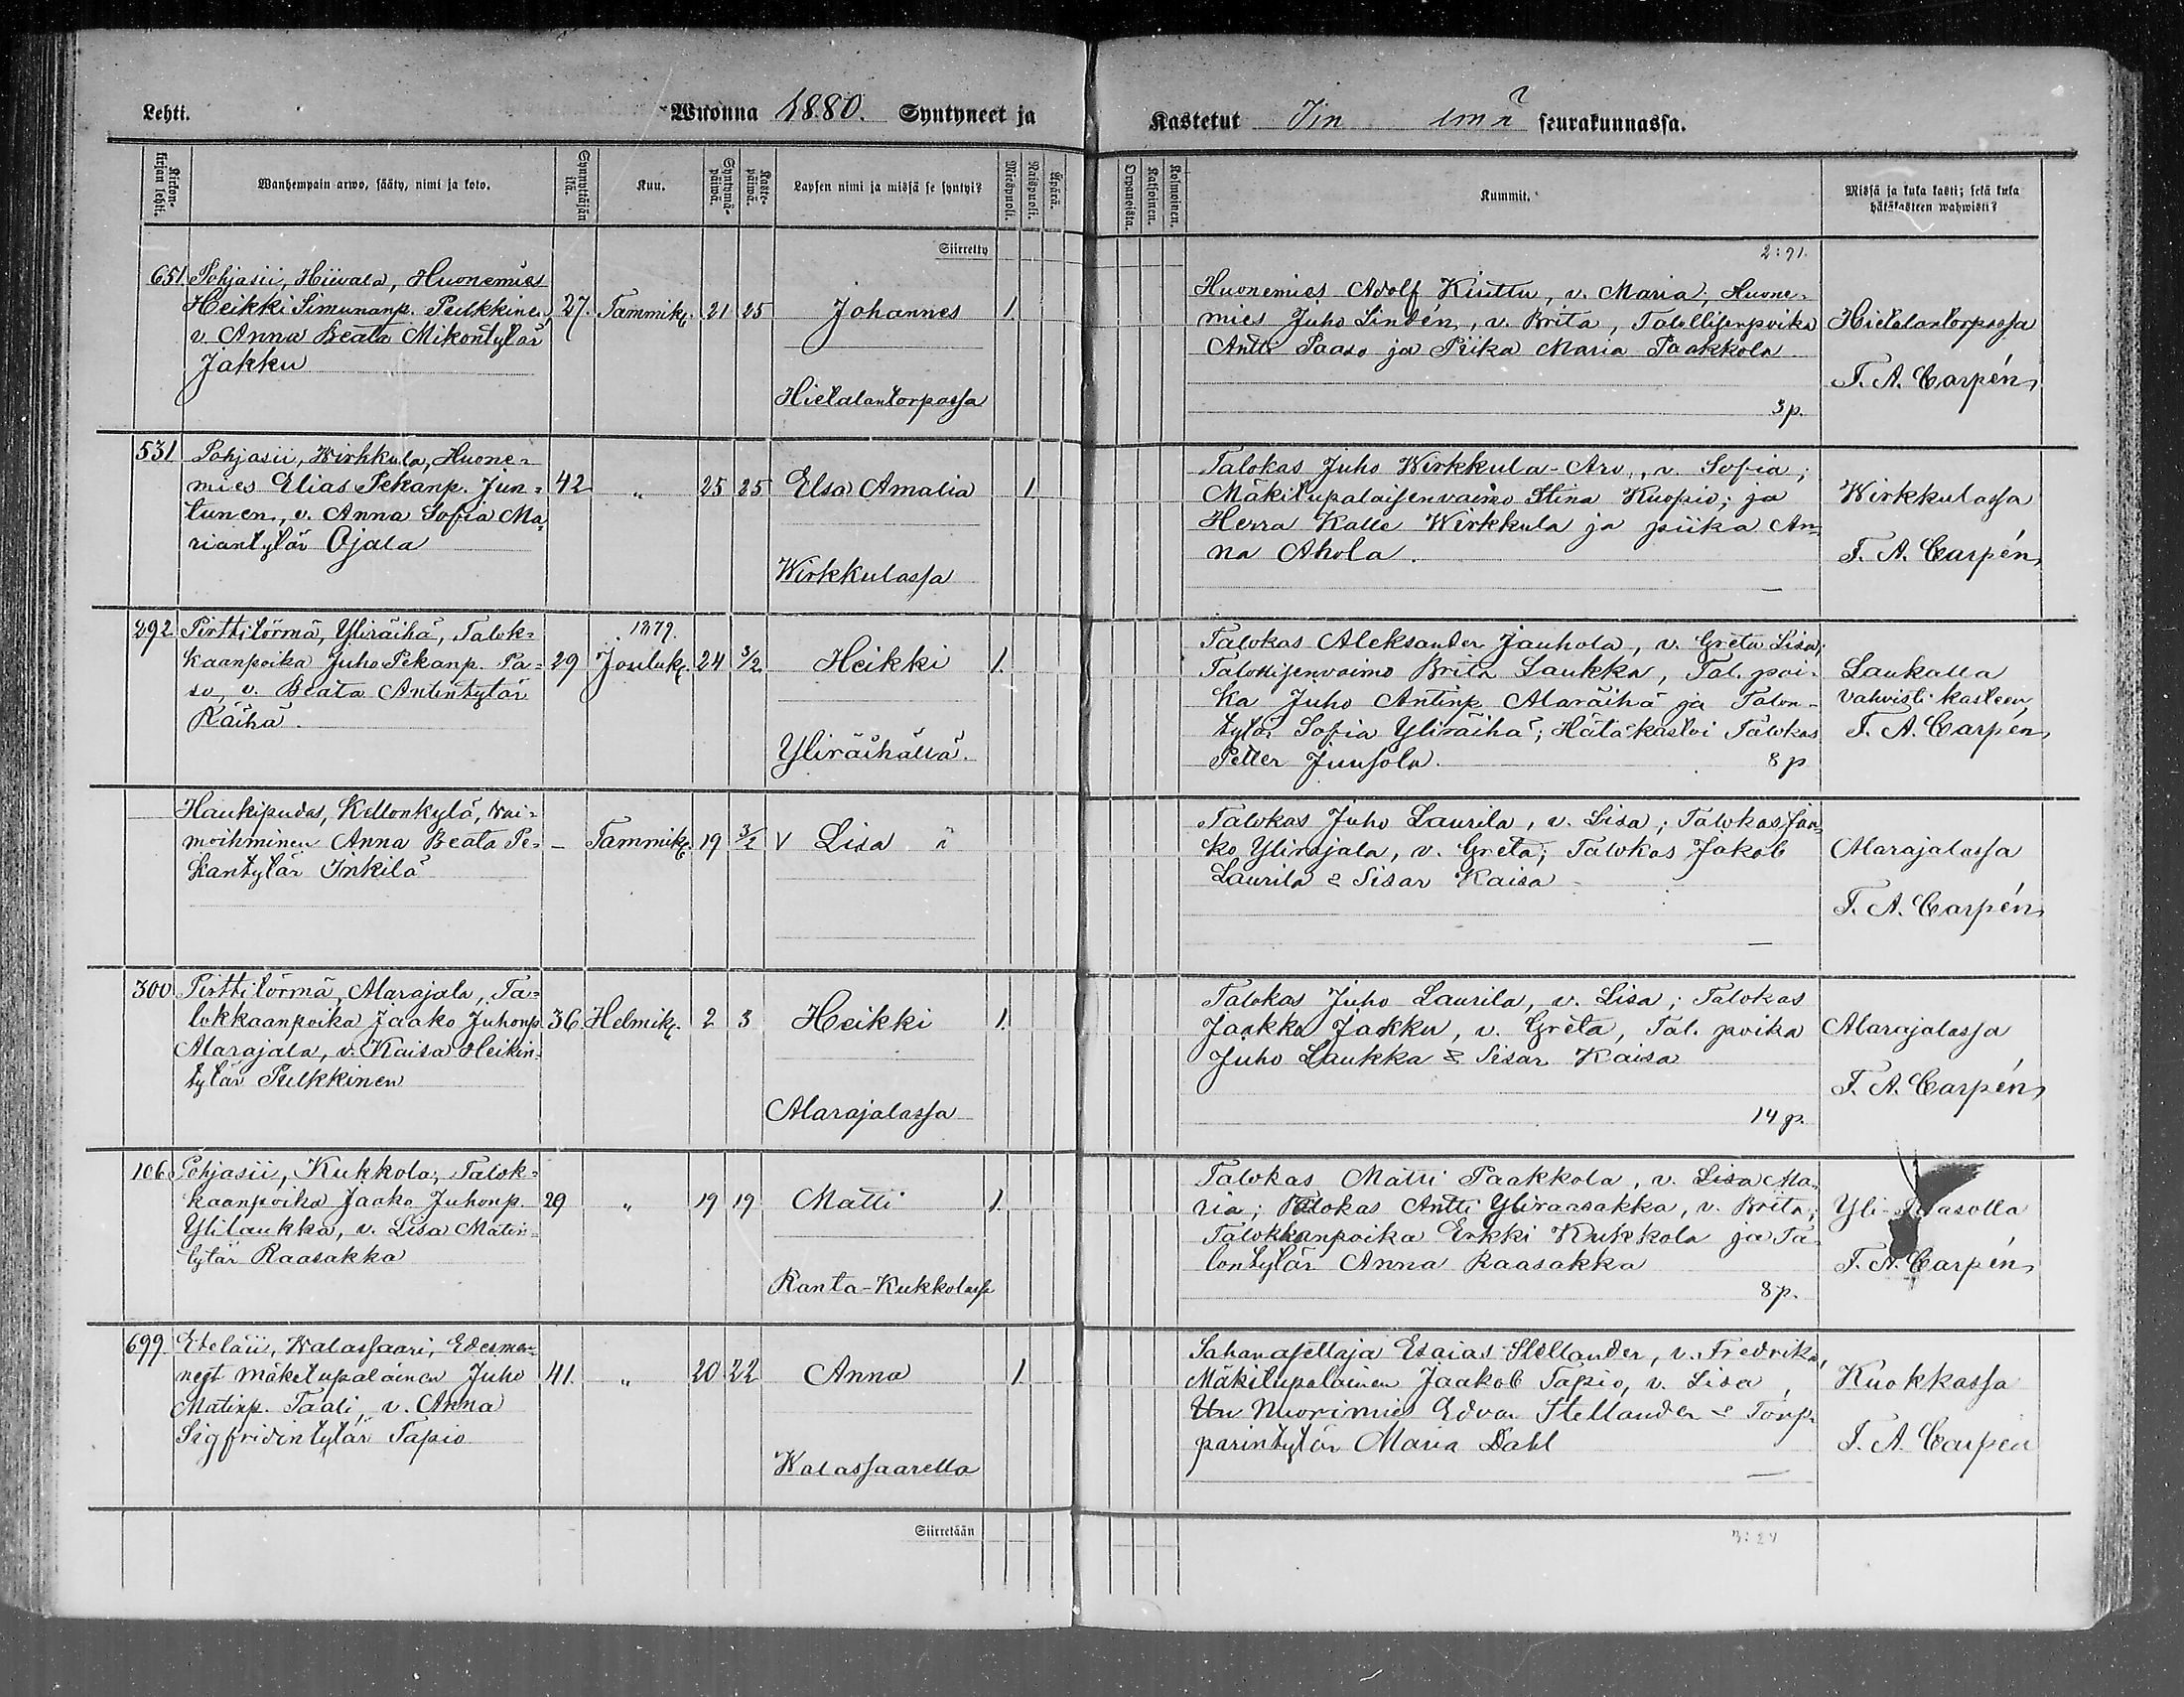 Lehti.
Wuonna 1880. Syntyneet ja
Kastetut Iin emä seurakunnassa.
Kirkonkirjan lehti.
Wanhempain arwo, sääty, nimi ja koto.
Synnyttäjän ikä.
Kuu.
Syntymäpäiwä.
Kastepäiwä.
Lapsen nimi ja missä se syntyi?
Miespuoli.
Waispuoli.
Äpärä.
Orpanoista.
Kaksoinen.
Kolmoinen.
Kummit.
Missä ja kuka kasti; sekä kuka
hätäkasteen wahwisti?
Siirretty
2:91.
651 Pohjasii, Hiivala, Huonemies
Heikki Simunanp. Pulkkinen,
v. Anna Beata Mikontytär
Jakku
27. Tammik. 21 25
Johannes 1.
Hietalantorpassa
Huonemies Adolf Kiuttu, v. Maria, Huone-
mies Juho Lindén, v. Brita, Talollisenpoika
Antti Paaso ja Piika Maria Paakkola
3 p.
Hietalantorpassa
T. A. Carpén
531 Pohjasii, Wirkkula, Huone-
mies Elias Pekanp. Jun-
tunen, v. Anna Sofia Ma-
riantytär Ojala
42 " 25 25
Elsa Amalia 1
Wirkkulassa
Talokas Juho Wirkkula-Arv., v. Sofia;
Mäkitupalaisenvaimo Stina Kuopio; ja
Herra Kalle Wirkkula ja piika An-
na Ahola.
Wirkkulassa
T. A. Carpén
292 Pirttitörmä, Yliräihä, Talok-
kaanpoika Juho Pekanp. Pa-
so, v. Beata Antintytär
Räihä.
29 1879. Jouluk. 24 3/2
Heikki 1.
Yliräihällä.
Talokas Aleksander Jauhola, v. Greta Lisa;
Talollisenvaimo Brita Laukka, Tal. poi-
ka Juho Antinp. Alaräihä ja Talon-
tytär Sofia Yliräihä; Hätäkastoi Talokas
Petter Juusola.
8 p
Laukalla
vahvisti kasteen
T. A. Carpén
Haukipudas, Kellonkylä, Vai-
moihminen Anna Beata Pe-
kantytär Inkilä
– Tammik. 19 3/2
V Lisa ä
Talokas Juho Laurila, v. Lisa; Talokas Jaa-
ko Ylirajala, v. Greta; Talokas Jakob
Laurila & Sisar Kaisa
Alarajalassa
T. A. Carpén
300 Pirttitörmä, Alarajala, Ta-
lokkaanpoika Jaako Juhonp.
Alarajala, v. Kaisa Heikin-
tytär Pulkkinen
36 Helmik. 2 3
Heikki 1.
Alarajalassa
Talokas Juho Laurila, v. Lisa; Talokas
Jaakko Jakku, v. Greta, Tal. poika
Juho Laukka & Sisar Kaisa
14 p.
Alarajalassa
T. A. Carpén
106 Pohjasii, Kukkola, Talok-
kaanpoika Jaako Juhonp.
Ylilaukka, v. Lisa Matin-
tytär Raasakka
29 " 19 19
Matti 1.
Ranta-Kukkolassa
Talokas Matti Paakkola, v. Lisa Ma-
ria; Talokas Antti Yliraasakka, v. Brita;
Talokkaanpoika Erkki Kukkola ja Ta-
lontytär Anna Raasakka
8 p.
T. A. Carpén
699 Eteläii, Kalassaari, Edesmen-
negt mäkitupalainen Juho
Matinp. Taali, v. Anna
Sigfridintytär Tapio
41. " 20 22
Anna 1.
Kalassaarella
Sahanasettaja Esaias Stellander, v. Fredrika,
Mäkitupalainen Jaakob Tapio, v. Lisa,
Nuorimies Edvar Stellander & Torp-
parintytär Maria Dahl
Kuokkassa
T. A. Carpén
Siirretään
3:24